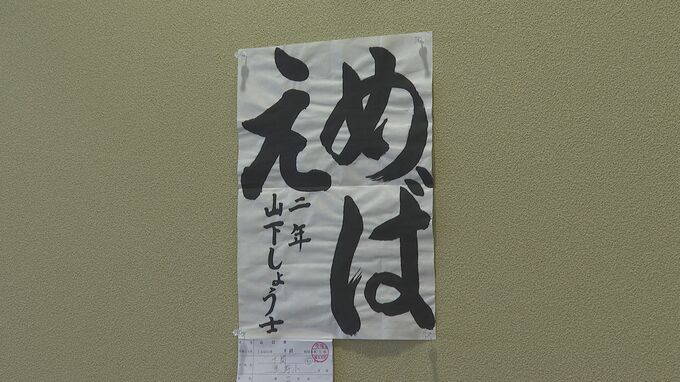 めば
え
二年
山下しょう士